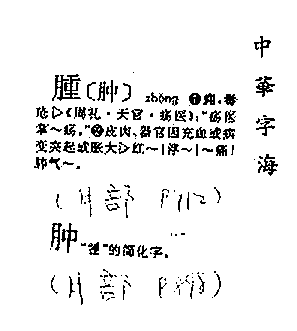 中華字海
腫〔肿〕 zhǒng ❶痈,毒
疮▷《周礼·天官·疡医》:"疡医
掌~疡。"❷皮肉、器官因充血或病
变突起或胀大▷红~|浮~|~痛|
肺气~。
(月部 P912)
肿 "腫"的简化字。
(月部 P898)